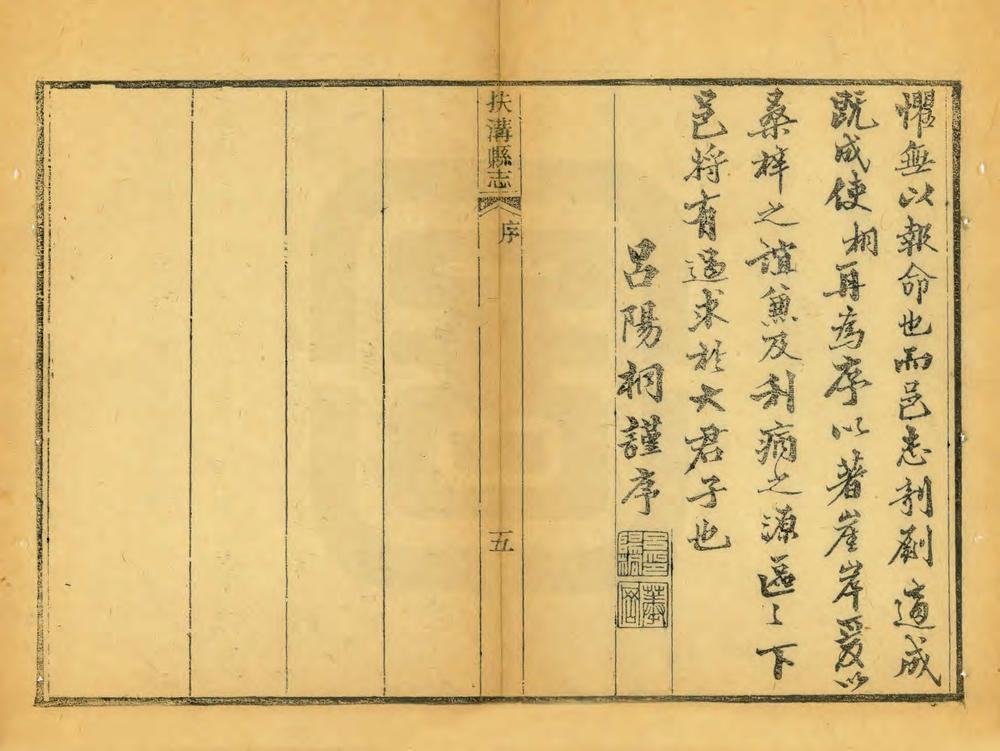 懼無以報命也而邑志剞劂適成
既成使桐再為序以著崖岸爰以
桑梓之誼兼及利病之源區〻下
邑將有過求於大君子也
呂陽桐謹序
扶溝縣志
序
五